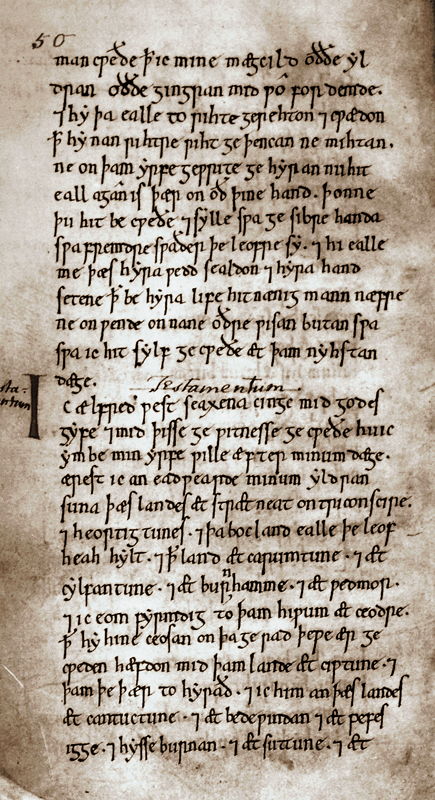 50
man cƿeðe þ ic mine mægcild oððe yl
dran oððe gingran mid ƿo fordemde.
⁊ hy þa ealle to rihte gerehton ⁊ cƿædon
þ hy nan rihtre riht geþencan ne mihtan.
ne on þam yrfe geƿrite ge hyran nu hit
eall agan is þær on oð þine hand. þonne
þu hit be cƿeðe ⁊ sylle sƿa ge sibre handa
sƿa fremdre sƿaðer þe leofre sy. ⁊ hi ealle
me þæs hyra ƿedd sealdon ⁊ hyra hand
setene þ be hyra life hit nænig mann næfre
ne on ƿende on nane oðre ƿisan butan sƿa
sƿa ic hit sylf ge cƿeðe æt þam nyhstan
dæge. Testamentum
Ic ælfred ƿest seaxena cinge mid godes
gyfe ⁊ mid þisse ge ƿitnesse ge cƿeðe hu ic
ymbe min yrfe ƿille æfter minum dæge.
ærest ic an eadƿearde minum yldran
suna þæs landes æt strætneat on triconscire.
⁊ heortigtunes. ⁊ þa bocland ealle þe leof
heah hylt. ⁊ þ land æt carumtune. ⁊ æt
cylfantune. ⁊ æt burnhamme. ⁊ æt ƿedmor.
⁊ ic eom fyrmdig to þam hiƿum æt ceodre.
þ hy hine ceosan on þa ge rad þe ƿe ær ge
cƿeden hæfdon mid þam lande æt ciƿtune. ⁊
þam þe þær to hyrað. ⁊ ic him an þæs landes
æt cantuctune. ⁊ æt bedeƿindan ⁊ æt ƿefes
igge. ⁊ hysseburnan. ⁊ æt suttune. ⁊ æt